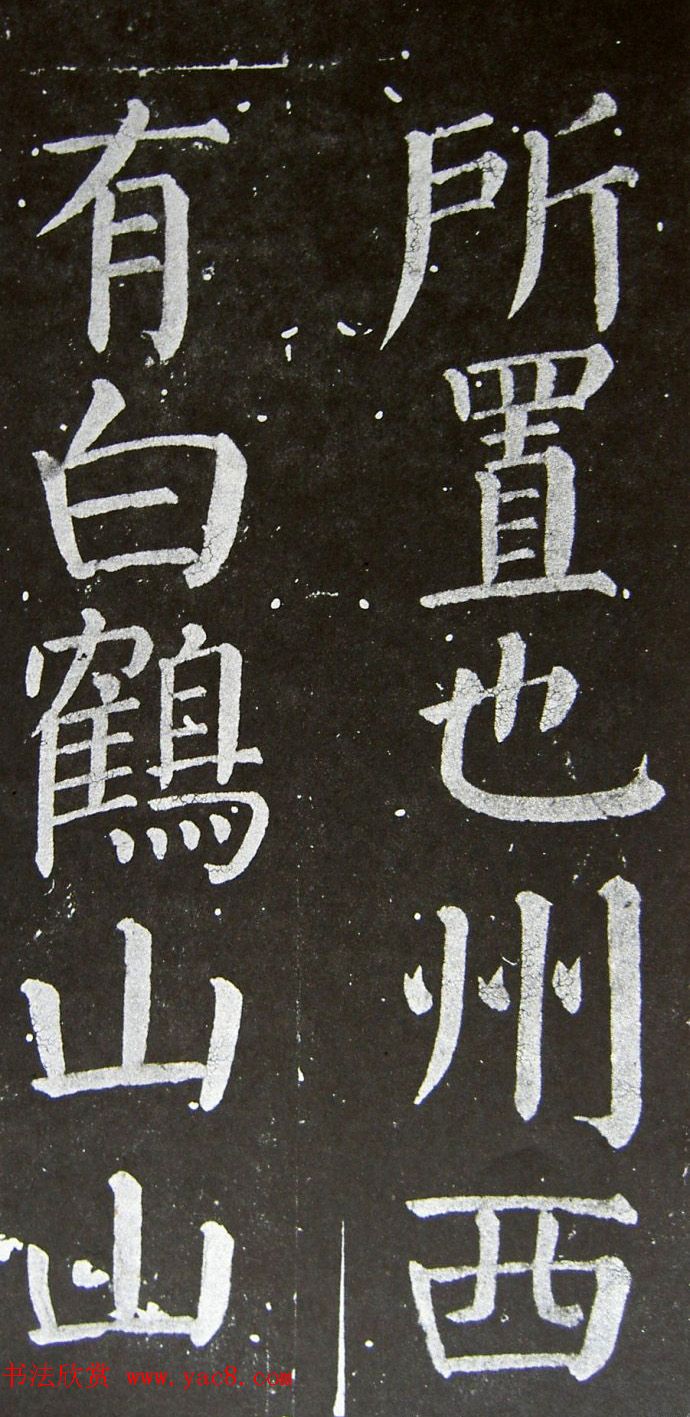 所置也州西
有白鶴山山
书法欣赏 www.yac8.com